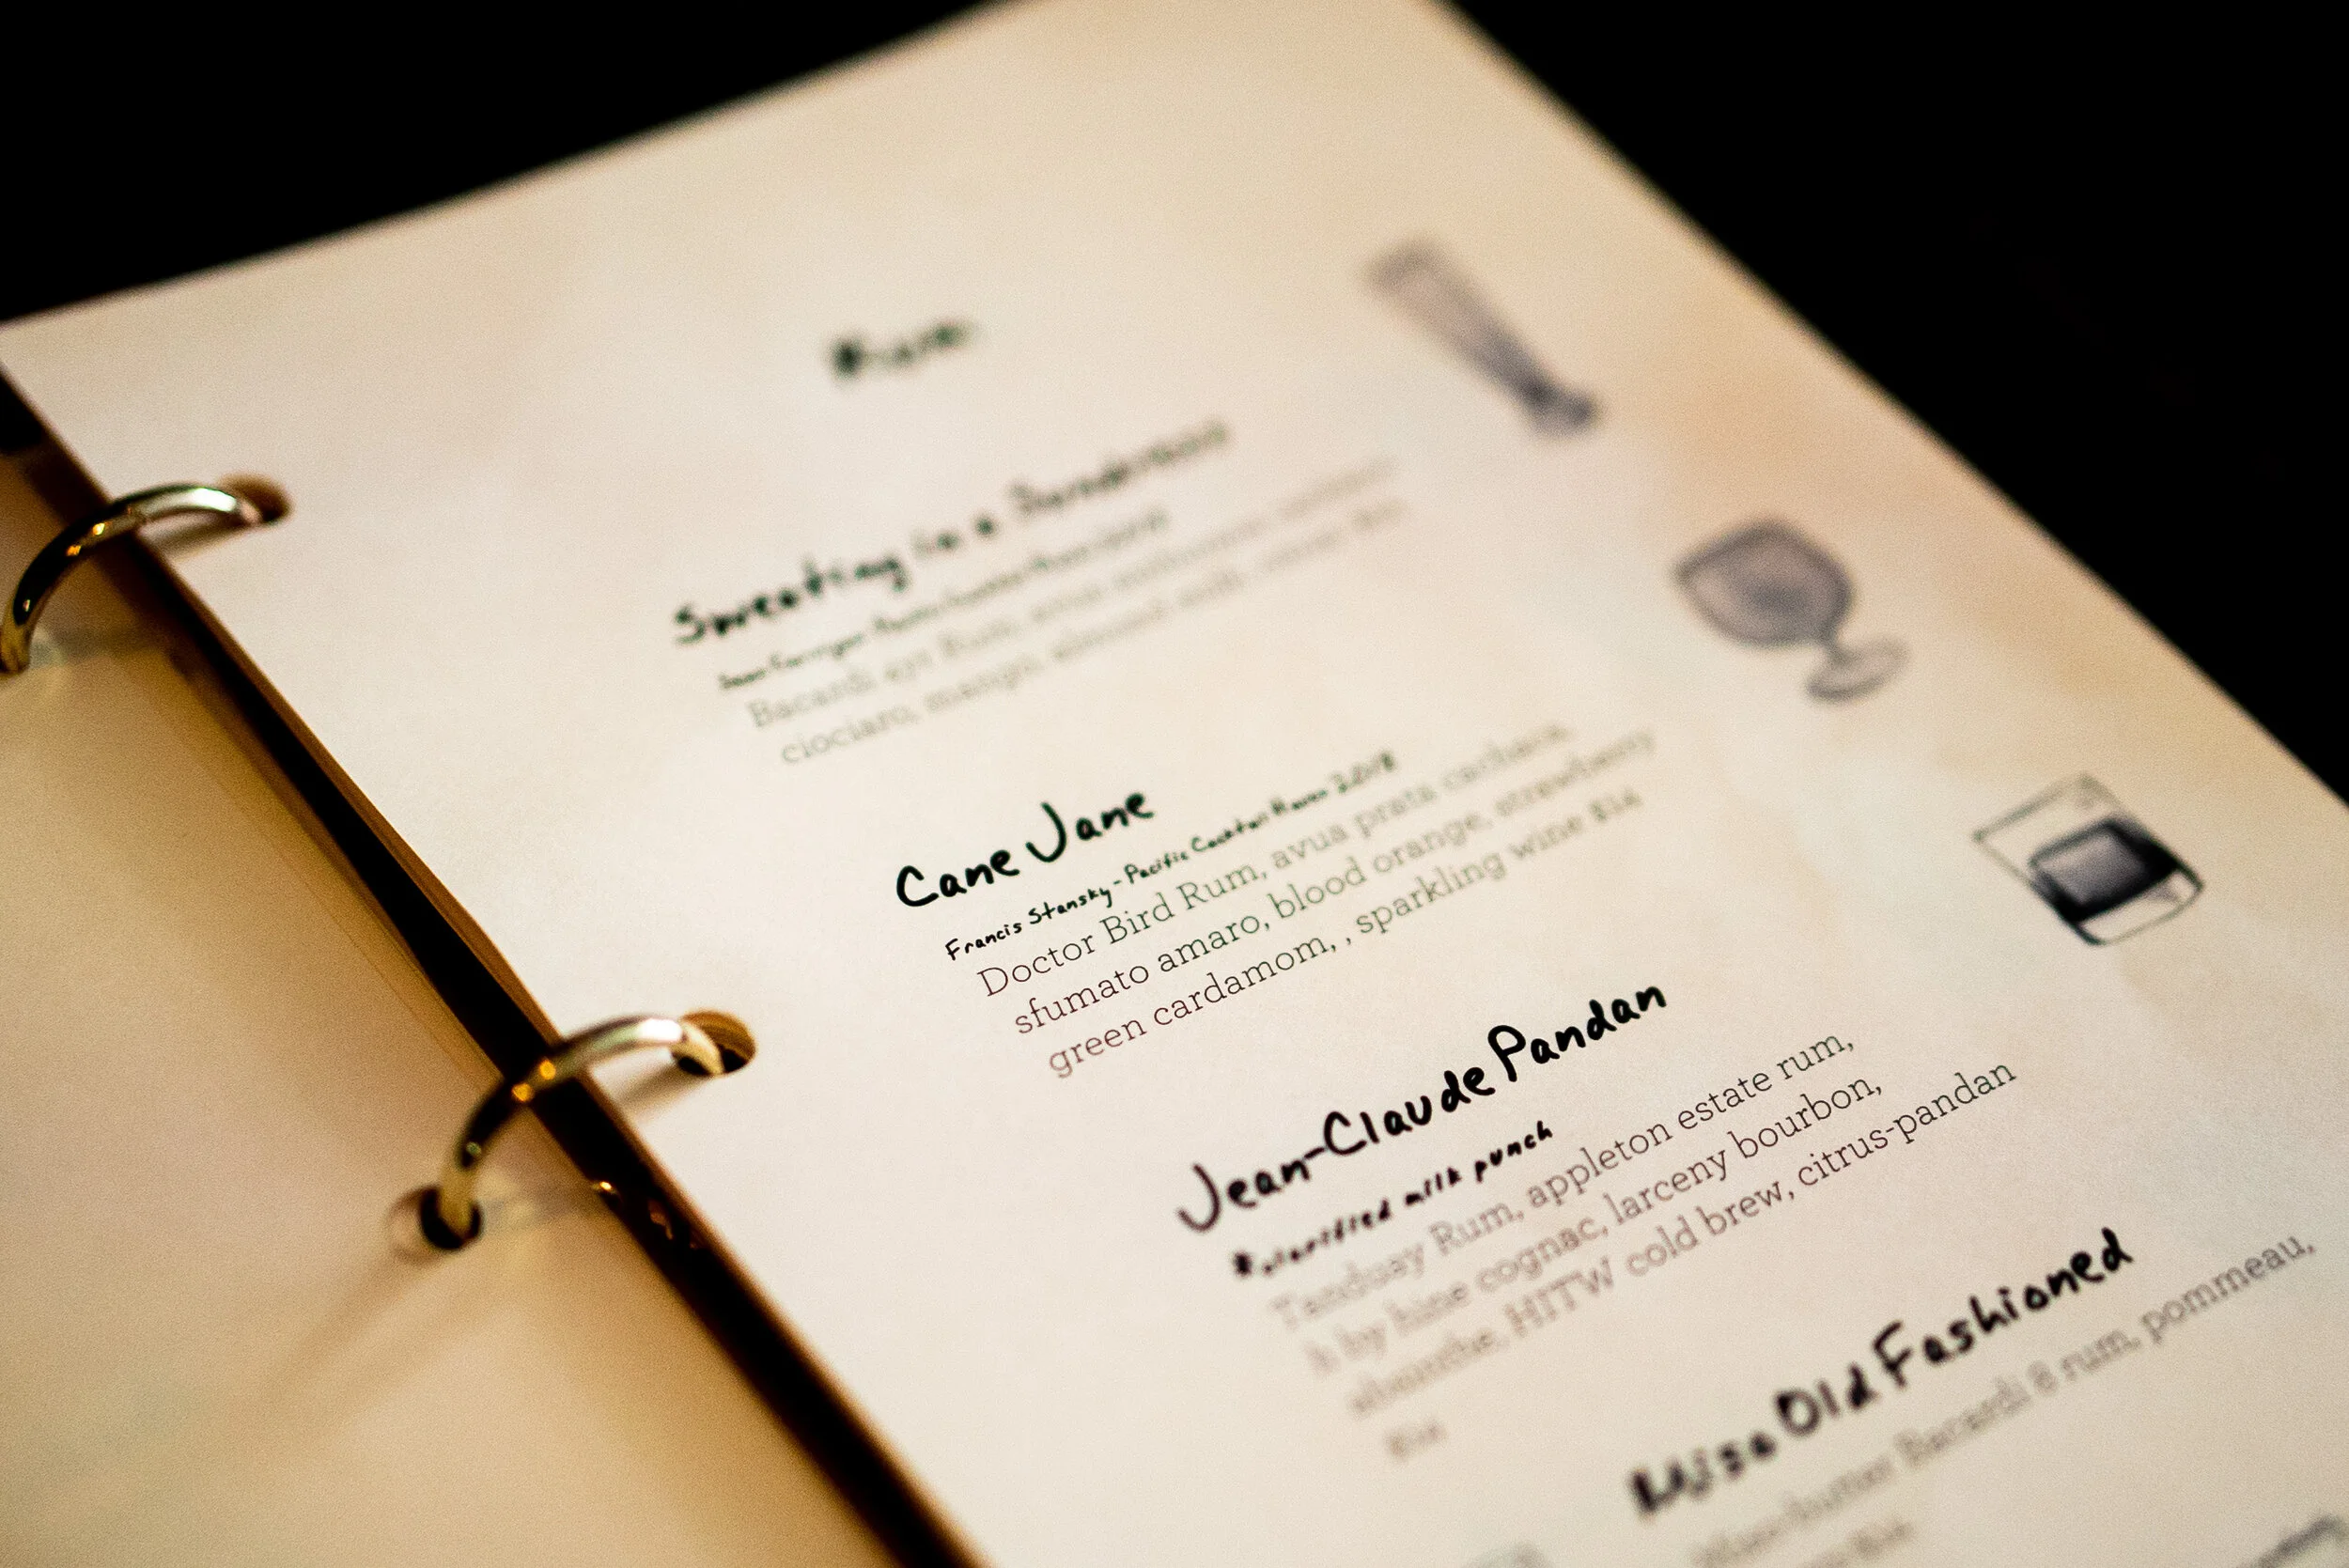 Rum
Sweating in a
Bacardi Rum,
ciociaro, mango, almond milk,
Cane Jane
Francis Stansky - Pacific Cocktail Haven 2018
Doctor Bird Rum, avua prata cachaca,
sfumato amaro, blood orange, strawberry
green cardamom, , sparkling wine $14
Jean-Claude Pandan
*clarified milk punch
Tanduay Rum, appleton estate rum,
h by hine cognac, larceny bourbon,
absinthe, HITW cold brew, citrus-pandan
$14
Miso Old Fashioned
Miso-butter Bacardi 8 rum, pommeau,